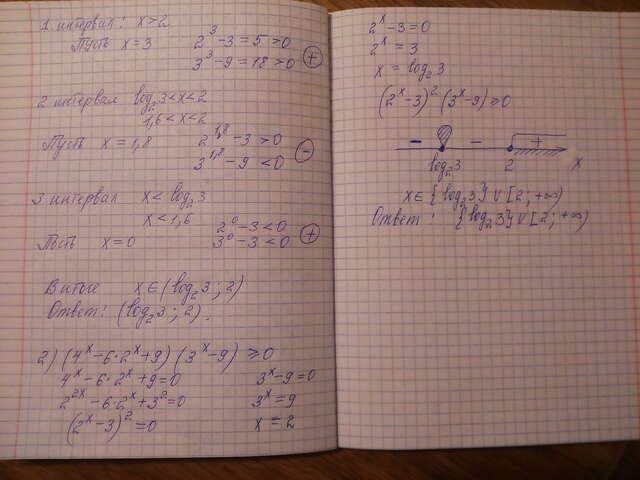 1 интервал: x>2
Пусть x=3 2³-3=5>0
3³-9=18>0 (+)
2 интервал log₂3<x<2
1,6<x<2
Пусть x=1,8 2^1,8-3>0
3^1,8-9<0 (-)
3 интервал x<log₂3
x<1,6
Псть x=0 2⁰-3<0
3⁰-3<0 (+)
В итоге x∈(log₂3; 2)
Ответ: (log₂3; 2).
2) (4^x-6·2^x+9)(3^x-9)≥0
4^x-6·2^x+9=0 3^x-9=0
2^2x-6·2^x+3²=0 3^x=9
(2^x-3)²=0 x=2
2^x-3=0
2^x=3
x=log₂3
(2^x-3)²(3^x-9)≥0
- - +
log₂3 2 x
x∈{log₂3}∪[2;+∞)
Ответ: {log₂3}∪[2;+∞)